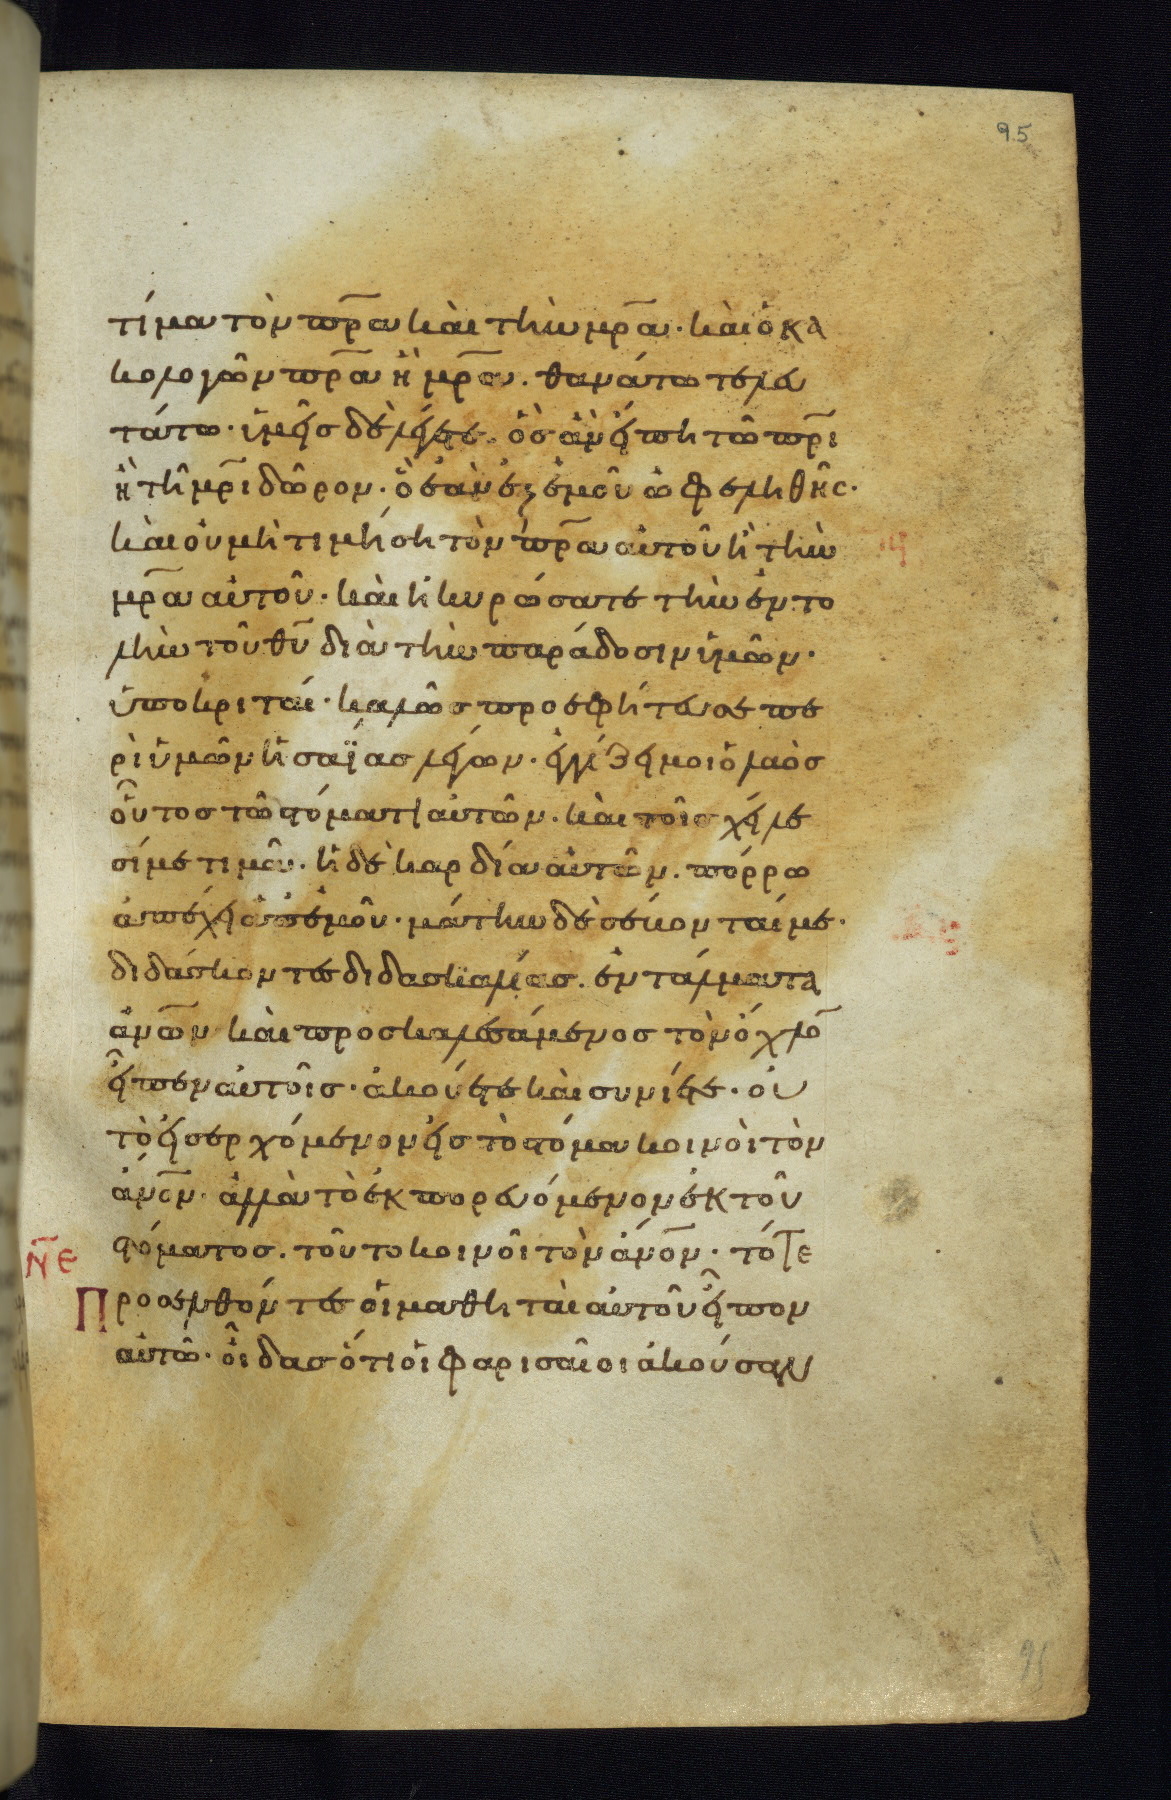 95
τίμα τὸν πρ̅α καὶ τὴν μρ̅α· καὶ ὁ κα
κολογῶν πρ̅α ἢ μρ̅α. θανάτω τελευ
τάτω· ὑμεῖς δὲ λέγετε. ὃς ἂν εἴπη τῶ πρ̅ι
ἢ τῆ μρ̅ι δῶρον. ὃ ἐὰν ἐξ ἐμοῦ ὠφεληθῆς·
καὶ οὐ μὴ τιμήση τὸν πρ̅α αὐτοῦ ἢ τὴν
μρ̅α αὐτοῦ· καὶ ἠκυρώσατε τὴν ἐντο
λὴν τοῦ θυ̅ διὰ τὴν παράδοσιν ὑμῶν·
ὑποκριταί· καλῶς προεφήτευσε πε
ρὶ ὑμῶν ἠσαΐας λέγων· ἐγγίζει μοι ὁ λαὸς
οὗτος τῶ στόματι αὐτῶν· καὶ τοῖς χείλε
σί με τιμᾶ. ἡ δὲ καρδία αὐτῶν. πόρρω
ἀπέχει ἀπ' ἐμοῦ· μάτην δὲ σέβονταί με·
διδάσκοντες διδασκαλίας. ἐντάλματα
ἀν̅ων καὶ προσκαλεσάμενος τὸν ὄχλο̅
εἶπεν αὐτοῖς· ἀκούετε καὶ συνίετε· οὐ
τὸ εἰσερχόμενον εἰς τὸ στόμα κοινοῖ τὸν
ἄν̅ον. ἀλλὰ τὸ ἐκπορευόμενον ἐκ τοῦ
στόματος. τοῦτο κοινοῖ τὸν ἄν̅ον· τότε
ΝΕ
Προσελθόντες οἱ μαθηταὶ αὐτοῦ εἶπον
αὐτῶ· οἶδας ὅτι οἱ φαρισαῖοι ἀκούσαν